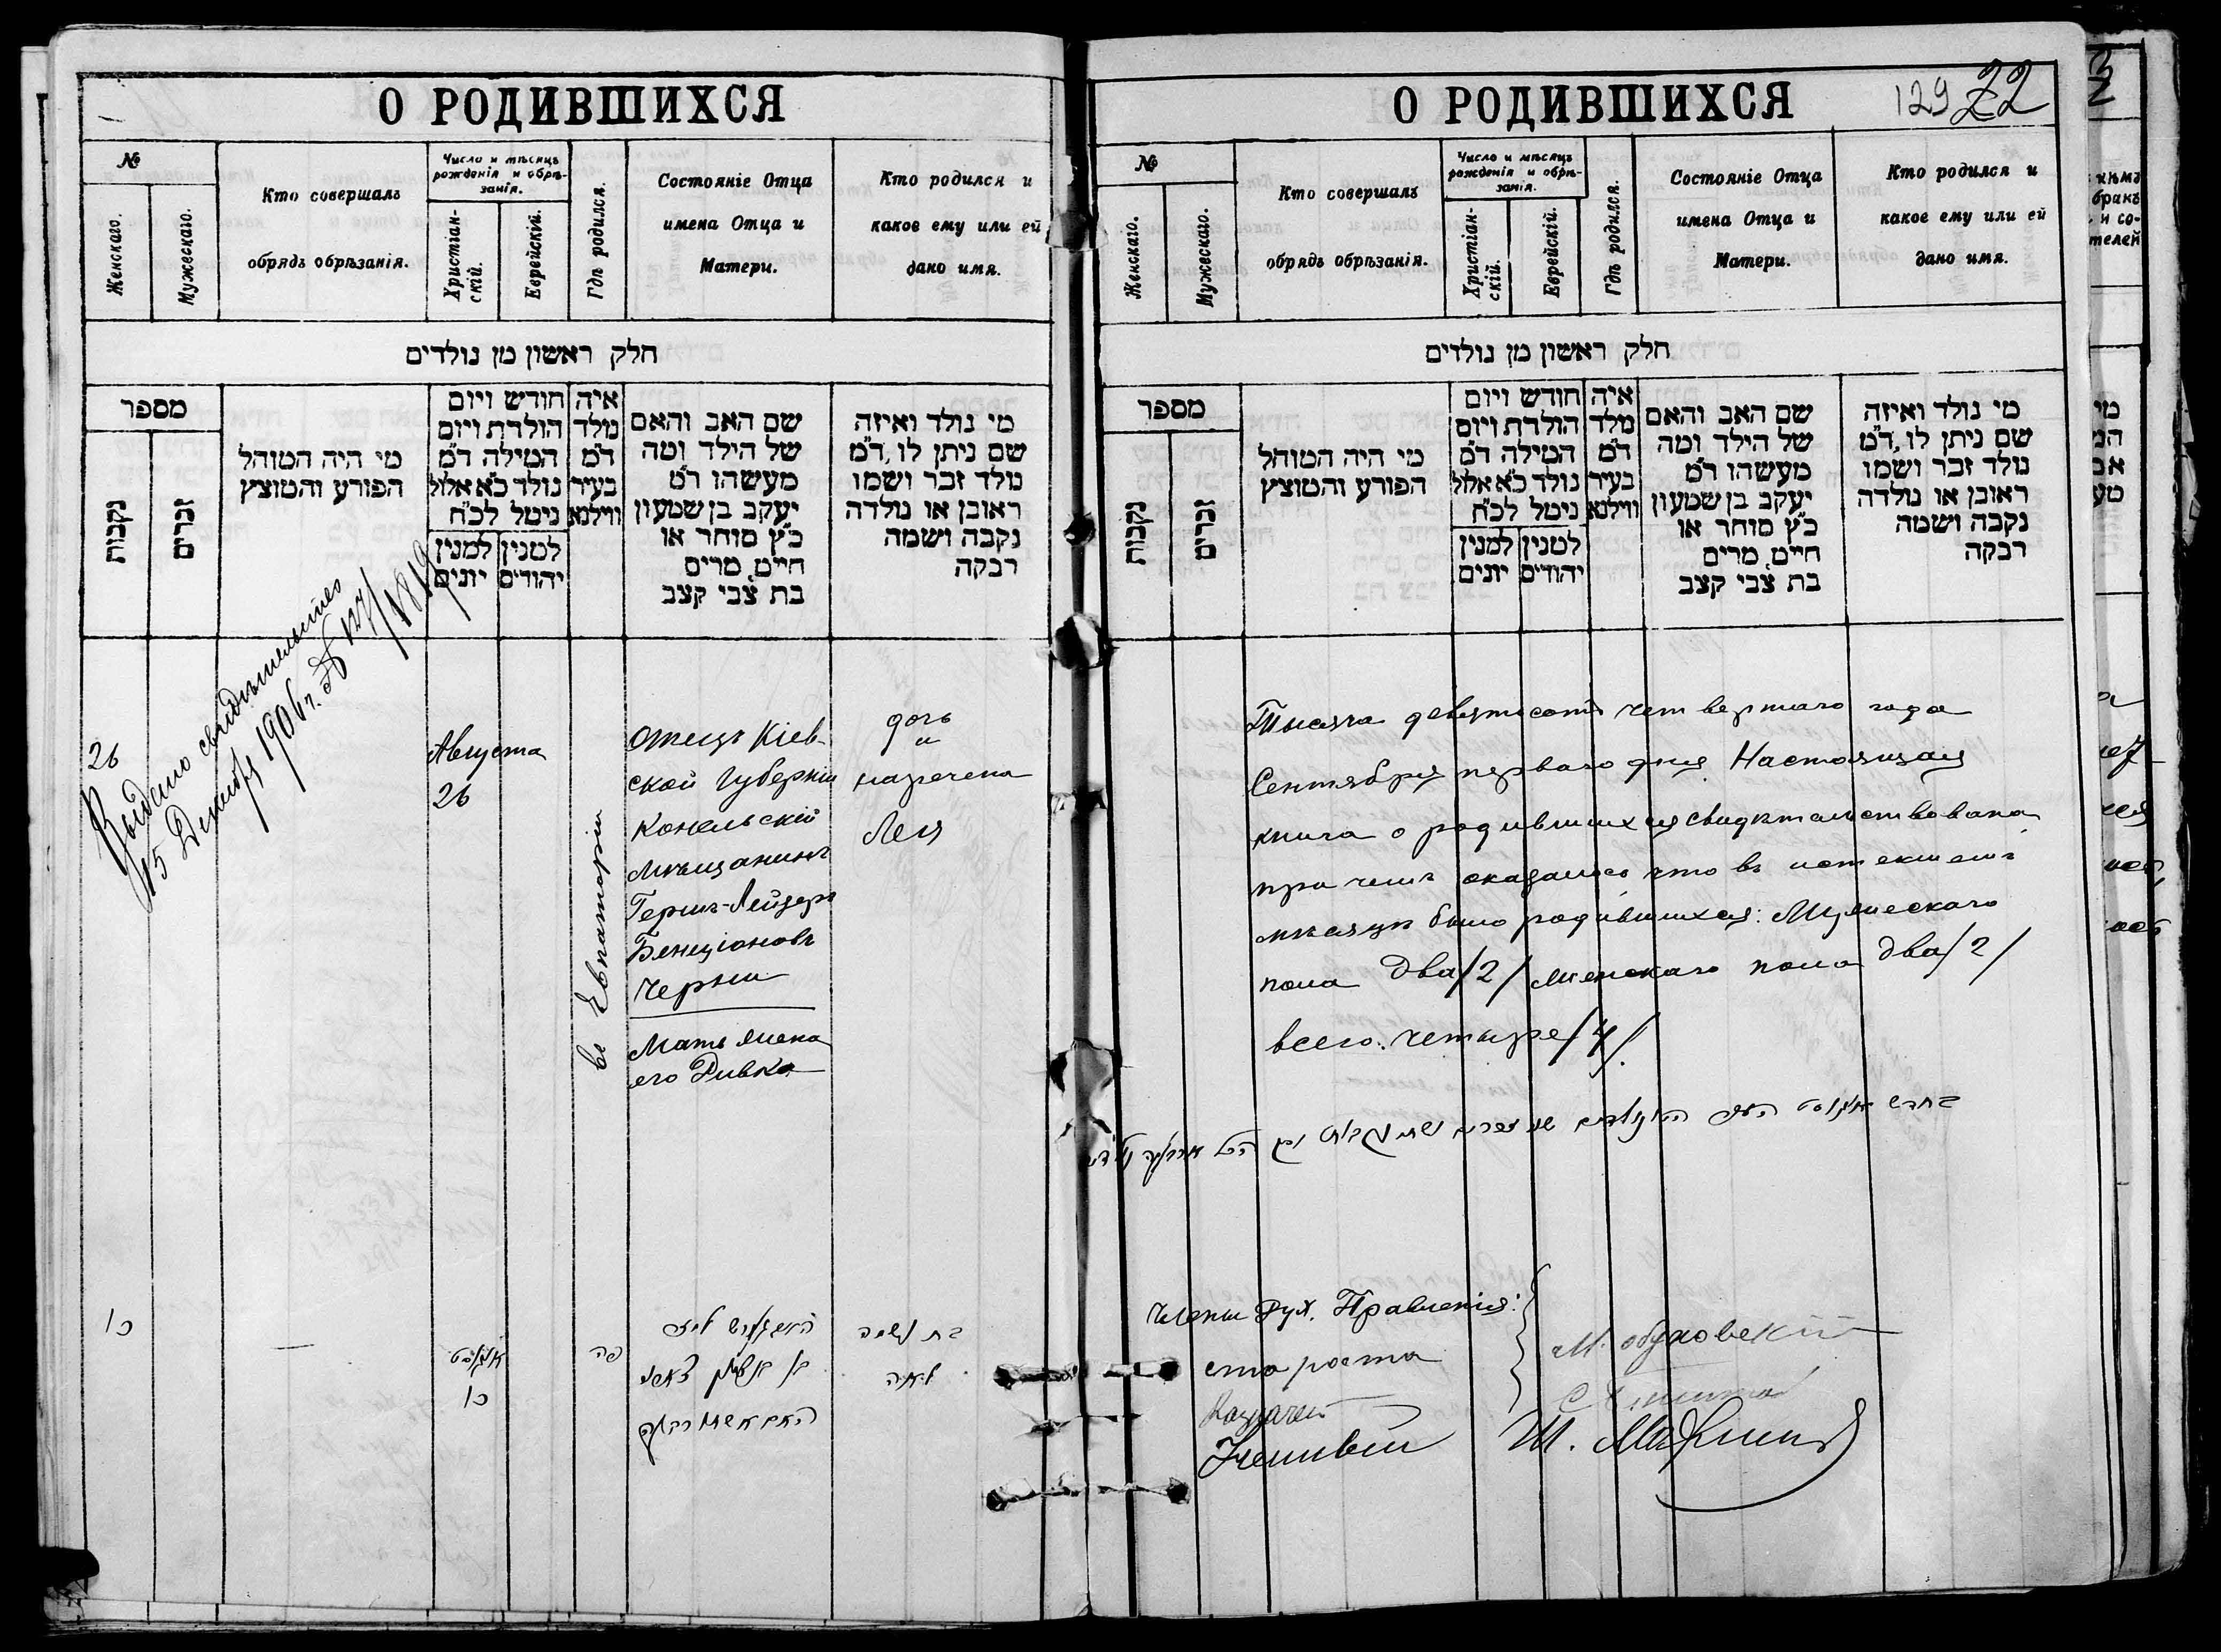 О РОДИВШИХСЯ
№
Женскаго.
Мужескаго.
Кто совершалъ
обрядъ обрѣзанія.
Число и мѣсяцъ
рожденія и обрѣ-
занія.
Христіан-
скій.
Еврейскій.
Гдѣ родился.
Состояніе Отца
имена Отца и
Матери.
Кто родился и
какое ему или ей
дано имя.
חלק ראשון מן נולדים
מספר
נקבות
זכרים
מי היה המוהל
הפורע והמוצץ
חודש ויום
הולדת ויום
המילה ד״מ
נולד כ״א אלול
נימל לכ״ח
למנין יונים
למנין יהודים
איה
נולד
ד״מ
בעיר
ווילנא
שם האב והאם
של הילד ומה
מעשהו ד״מ
יעקב בן שמעון
כ״ץ סוחר או
חייט, מרים
בת צבי קצב
מי נולד ואיזה
שם ניתן לו, ד״מ
נולד זכר ושמו
ראובן או נולדה
נקבה ושמה
רבקה
26
Выдано свидѣтельство
15 Декабря 1906 г. №
Августа
26
въ Евпаторіи
Отецъ Кіев-
ской Губерніи
Конельскій
мѣщанинъ
Гершъ-Лейзеръ
Бенціоновъ
Черни
Мать жена
его Ривка
дочь
и
наречена
Лея
כו
אויגוסט
כו
פה
בן בן ציון
האם אשתו רבקה
בת ושמה
לאה
О РОДИВШИХСЯ
129 22
№
Женскаго.
Мужескаго.
Кто совершалъ
обрядъ обрѣзанія.
Число и мѣсяцъ
рожденія и обрѣ-
занія.
Христіан-
скій.
Еврейскій.
Гдѣ родился.
Состояніе Отца
имена Отца и
Матери.
Кто родился и
какое ему или ей
дано имя.
חלק ראשון מן נולדים
מספר
נקבות
זכרים
מי היה המוהל
הפורע והמוצץ
חודש ויום
הולדת ויום
המילה ד״מ
נולד כ״א אלול
נימל לכ״ח
למנין יונים
למנין יהודים
איה
נולד
ד״מ
בעיר
ווילנא
שם האב והאם
של הילד ומה
מעשהו ד״מ
יעקב בן שמעון
כ״ץ סוחר או
חייט, מרים
בת צבי קצב
מי נולד ואיזה
שם ניתן לו, ד״מ
נולד זכר ושמו
ראובן או נולדה
נקבה ושמה
רבקה
Тысяча девятьсотъ четвертаго года
Сентября перваго дня Настоящая
книга о родившихся свидѣтельствована
при чемъ оказалось что въ истекшемъ
мѣсяцѣ было родившихся: Мужескаго
пола два/2/ женскаго пола два/2/
всего: четыре/4/.
בחדש אויגוסט
Члены Дух. Правленія:
староста
Казначей
Ученый